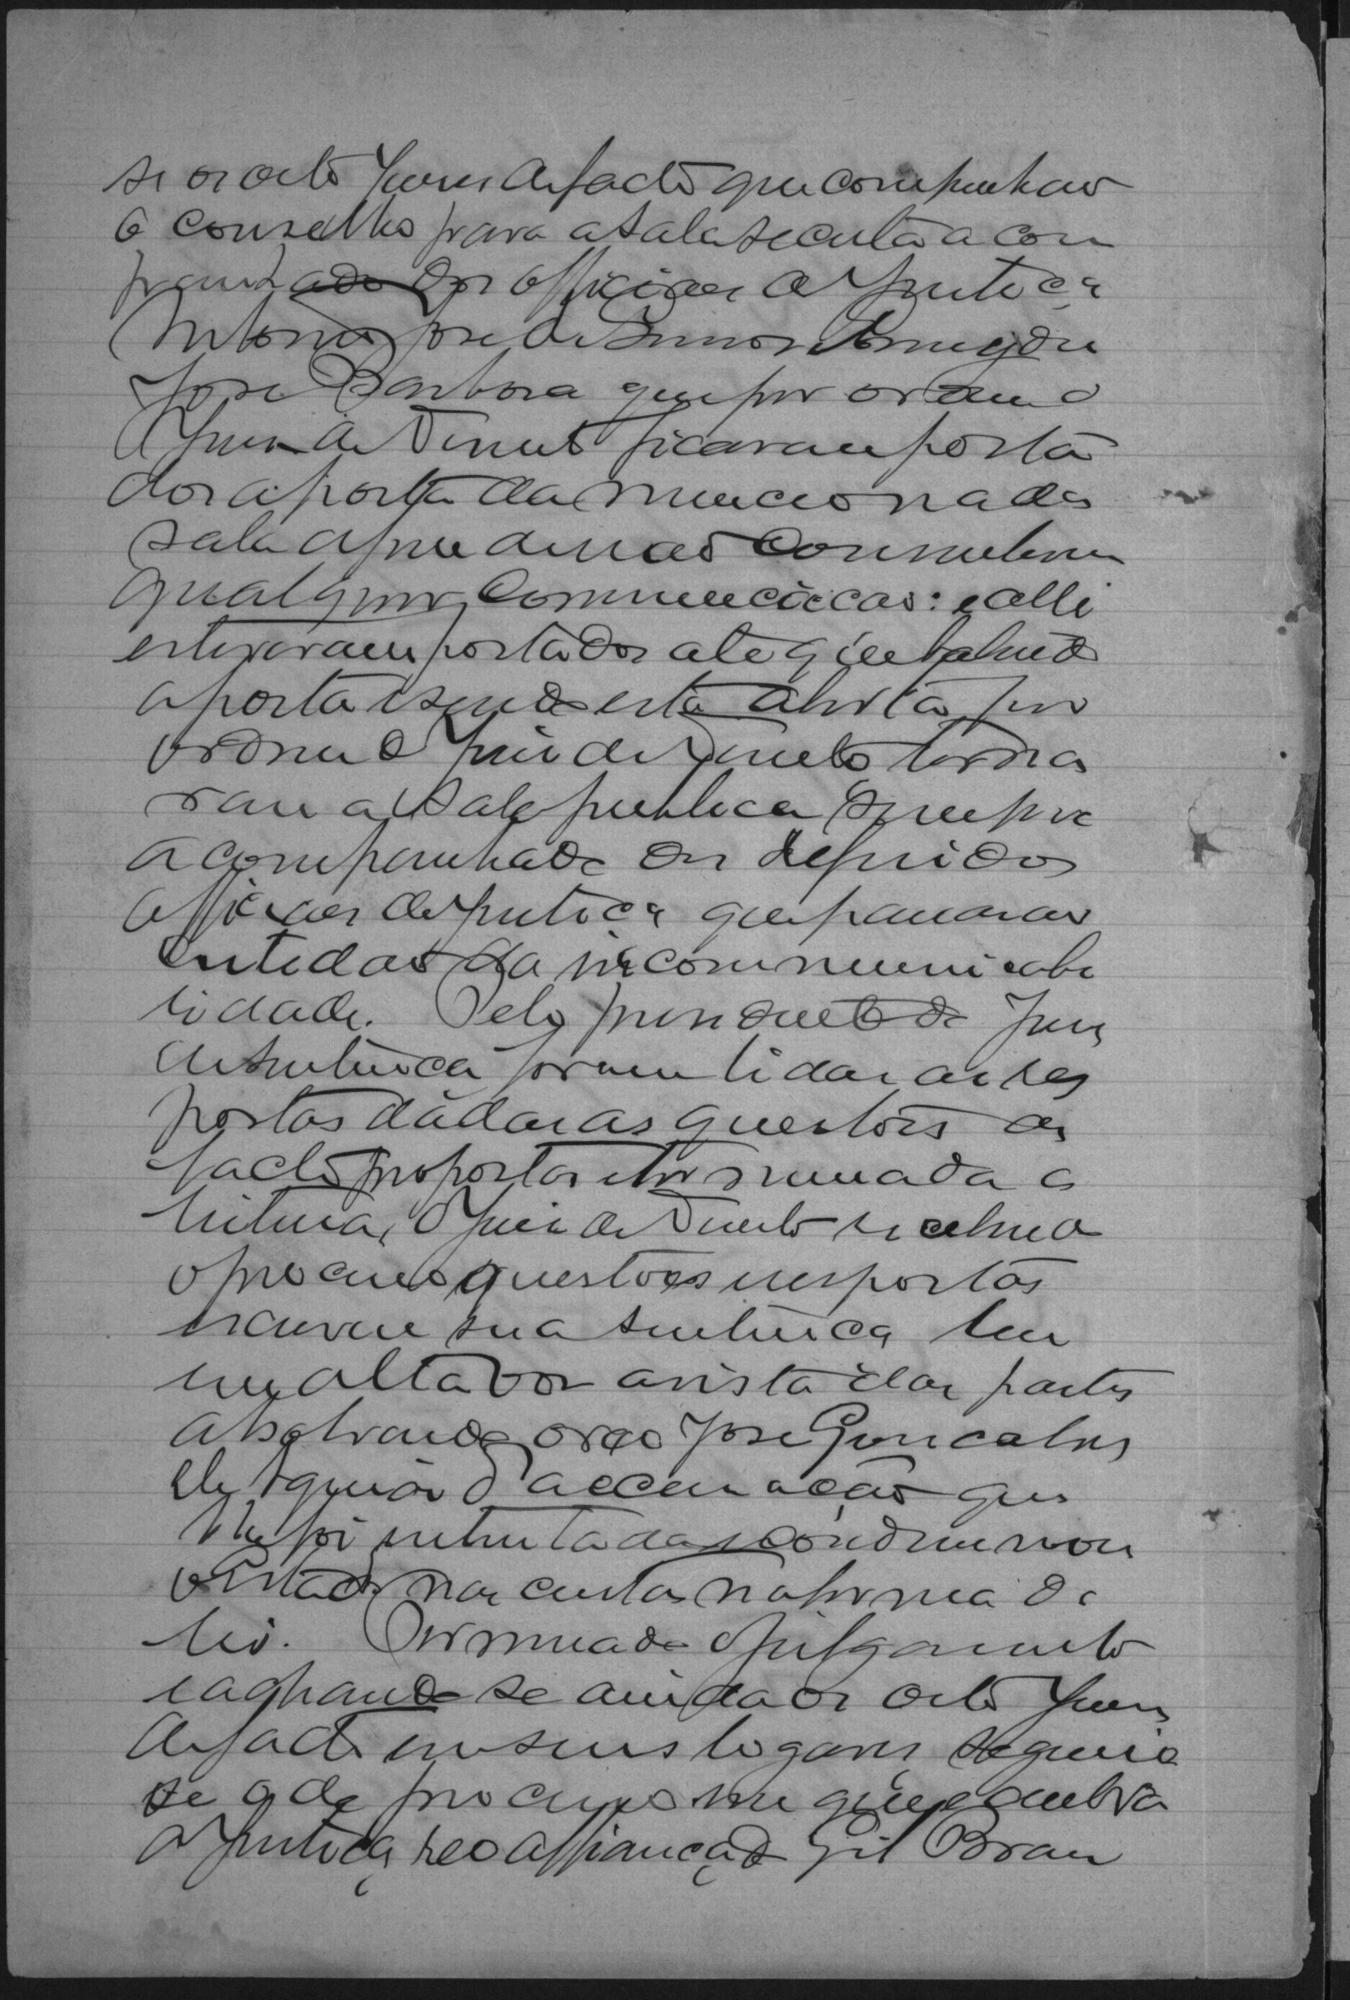 se os oito Juises de facto que compunhão
o conselho para a sala secreta acom
panhado dos officiaes de Justiça
Antonio José de Barros
José Barbosa que por ordem do
Juiz de Direito ficaram posta
dos a porta da mencionada
sala afim de não consentirem
qualquer communicação: e alli
estiveram postados até que batendo
a porta e sendo esta aberta por
ordem do Juiz de Direito torna
ram a sala publica sempre
acompanhados dos referidos
officiaes de Justiça que passarão
certidão da incommunicabi
lidade. Pelo presidente do Jury
de sentença foram lidas as res
postas dadas as questões de
facto propostas e terminada a
leitura, o Juiz de Direito recebendo
o processo questões e respostas
escreveu sua sentença leu
em alta voz a vista das partes
absolvendo o reo José Gonçalves
da accusação que
lhe foi intentada e condemnou
o Estado nas custas na forma da
lei. Terminado o julgamento
e achando-se ainda os oito Juises
de facto em seus logares seguio
se o do processo em que é autora
a Justiça reo affiançado Gil Bran